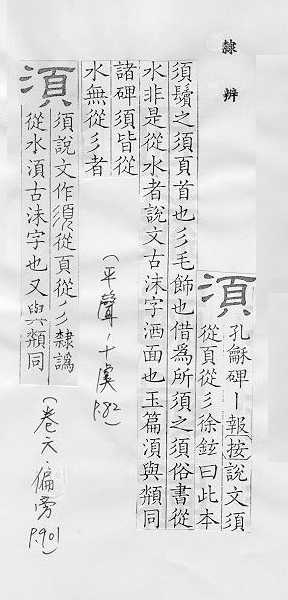 隸辨
湏 孔龢碑丨報按說文須
從頁從彡徐鉉曰此本
須鬢之須頁首也彡毛飾也借為所須之須俗書從
水非是從水者說文古沬字洒面也玉篇湏與頮同
諸碑須皆從
水無從彡者
(平聲·十虞 P.82)
湏 須說文作須從頁從彡隸譌
從水湏古沬字也又與頮同
(卷六·偏旁 P.901)